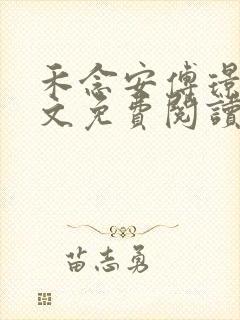 禾念安傅璟
文免費閱讀
苗志勇